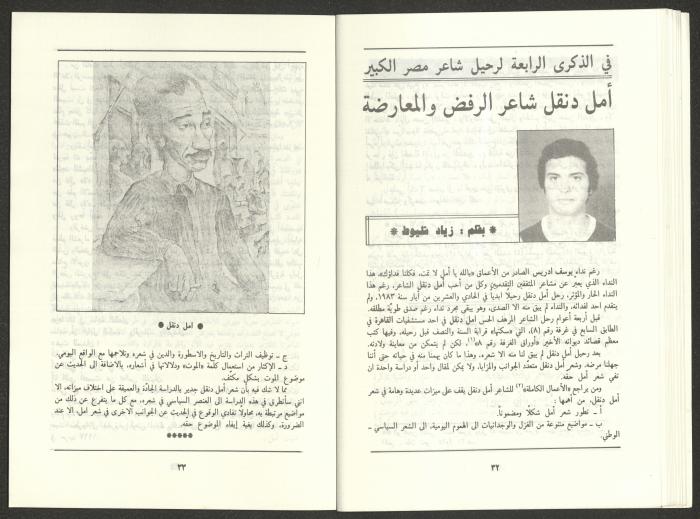 في الذكرى الرابعة لرحيل شاعر مصر الكبير
أمل دنقل شاعر الرفض والمعارضة
* بقلم : زياد شليوط *
رغم نداء يوسف ادريس الصادر من الأعماق «بالله يا أمل لا تمت، فكلنا فداؤك»، هذا
النداء الذي يعبّر عن مشاعر المثقفين التقدميين وكل من أحب أمل دنقل الشاعر. رغم هذا
النداء الحار والمؤثر، رحل أمل دنقل رحيلاً أبدياً في الحادي والعشرين من أيار سنة ١٩٨٣، ولم
يتقدم احد لفدائه، والنداء لم يبق منه الا الصدى، وهو يبقى مجرد نداء رغم صدق طويّة مطلقه.
قبل أربعة أعوام رحل الشاعر المرهف الحس أمل دنقل في احد مستشفيات القاهرة في
الطابق السابع في غرفة رقم (٨)، التي «سكنها» قرابة السنة والنصف قبل رحيله، وفيها كتب
معظم قصائد ديوانه الأخير «أوراق الغرفة رقم ٨»(١). لكن لم يتمكن من معاينة ولادته.
بعد رحيل أمل دنقل لم يبق لنا منه الا شعره، وهذا ما كان يهمنا منه في حياته حتى أننا
جهلنا مرضه. وشعر أمل دنقل متعدّد الجوانب والمزايا، ولا يمكن لمقال واحد أو دراسة واحدة ان
تفي شعر أمل حقه.
ومن يراجع «الأعمال الكاملة»(٢) للشاعر أمل دنقل يقف على ميزات عديدة وهامة في شعر
أمل دنقل، من أهمها :
أ ـ تطور شعر أمل شكلاً ومضموناً.
ب ـ مواضيع متنوعة من الغزل والوجدانيات الى الهموم اليومية، الى الشعر السياسي ـ
الوطني.
٣٢
● امل دنقل ●
ج ـ توظيف التراث والتاريخ والاسطورة والدين في شعره وتلاحمها مع الواقع اليومي.
د ـ الإكثار من استعمال كلمة «الموت» ودلالاتها في أشعاره، بالاضافة الى الحديث عن
موضوع الموت بشكل مكثّف.
مما لا شك فيه بأن شعر أمل دنقل جدير بالدراسة الجادّة والعميقة على اختلاف ميزاته، الا
انني سأتطرق في هذه الدراسة الى العنصر السياسي في شعره، مع كل ما يتفرع عن ذلك من
مواضيع مرتبطة به، محاولا تفادي الوقوع في الحديث عن الجوانب الاخرى في شعر أمل، الا عند
الضرورة، وكذلك بغية إيفاء الموضوع حقه.
*****
٣٣